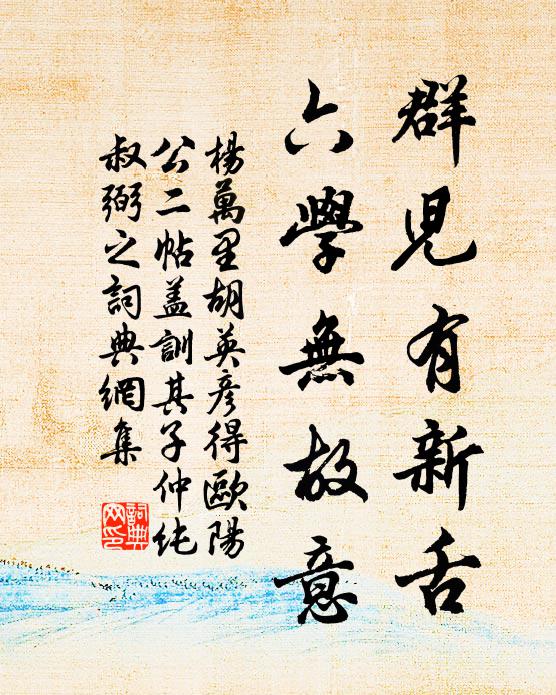 群児有新舌
六學無故意
楊萬里胡英彦得歐陽
公二帖蓋訓其子仲純
叔弼之詞典網集
詞典
网印